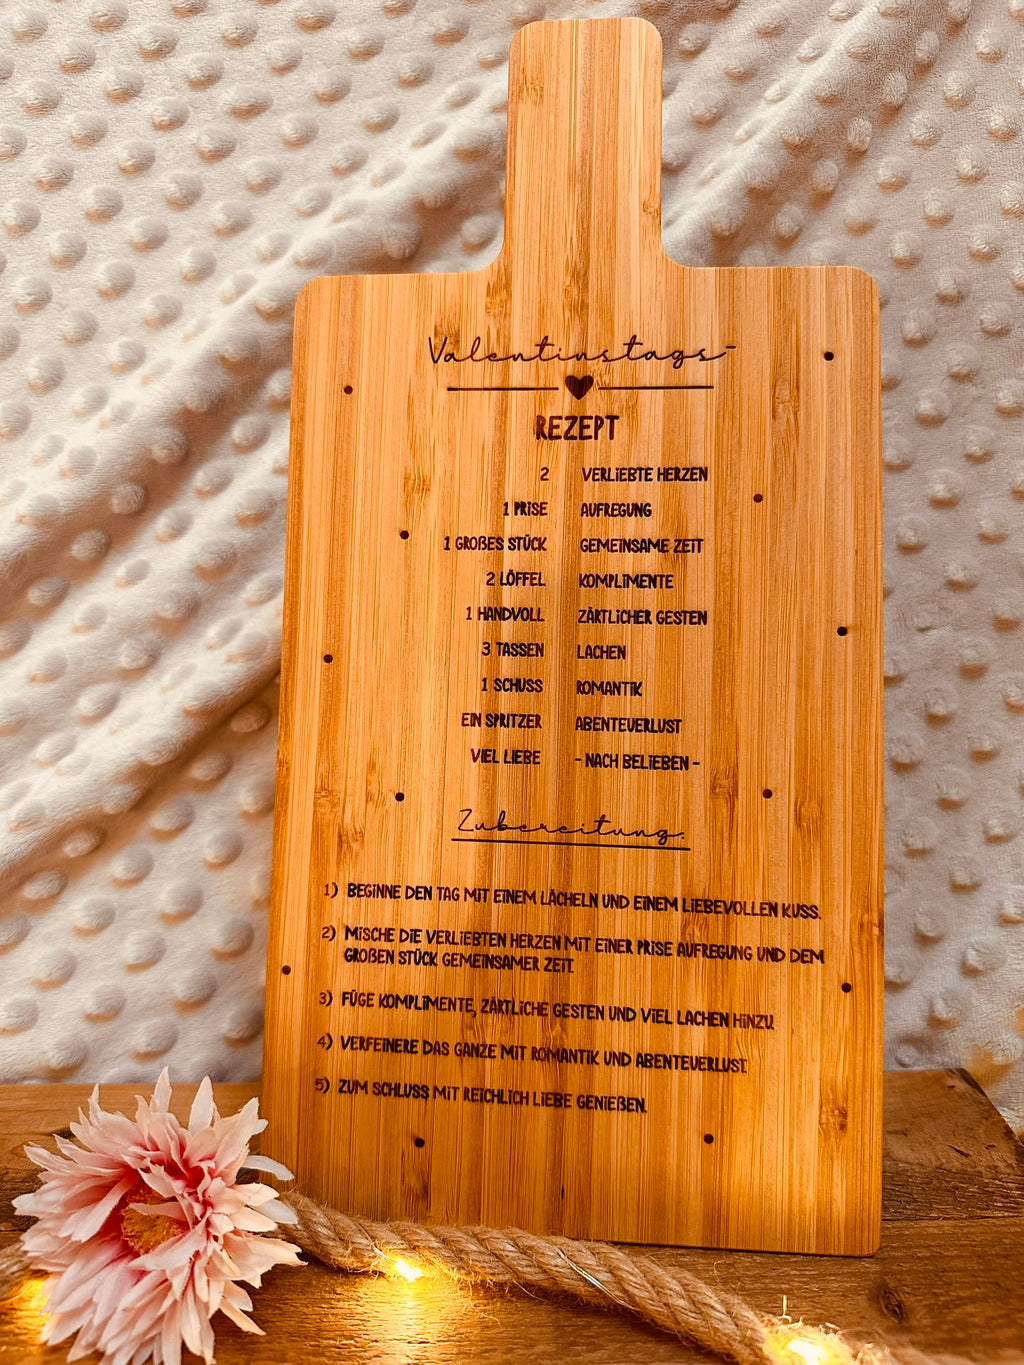 Valentinstags-
REZEPT
2 VERLIEBTE HERZEN
1 PRISE AUFREGUNG
1 GROßES STÜCK GEMEINSAME ZEIT
2 LÖFFEL KOMPLIMENTE
1 HANDVOLL ZÄRTLICHER GESTEN
3 TASSEN LACHEN
1 SCHUSS ROMANTIK
EIN SPRITZER ABENTEUERLUST
VIEL LIEBE - NACH BELIEBEN -
Zubereitung:
1) BEGINNE DEN TAG MIT EINEM LÄCHELN UND EINEM LIEBEVOLLEN KUSS.
2) MISCHE DIE VERLIEBTEN HERZEN MIT EINER PRISE AUFREGUNG UND DEM
GROßEN STÜCK GEMEINSAMER ZEIT.
3) FÜGE KOMPLIMENTE, ZÄRTLICHE GESTEN UND VIEL LACHEN HINZU.
4) VERFEINERE DAS GANZE MIT ROMANTIK UND ABENTEUERLUST.
5) ZUM SCHLUSS MIT REICHLICH LIEBE GENIEßEN.